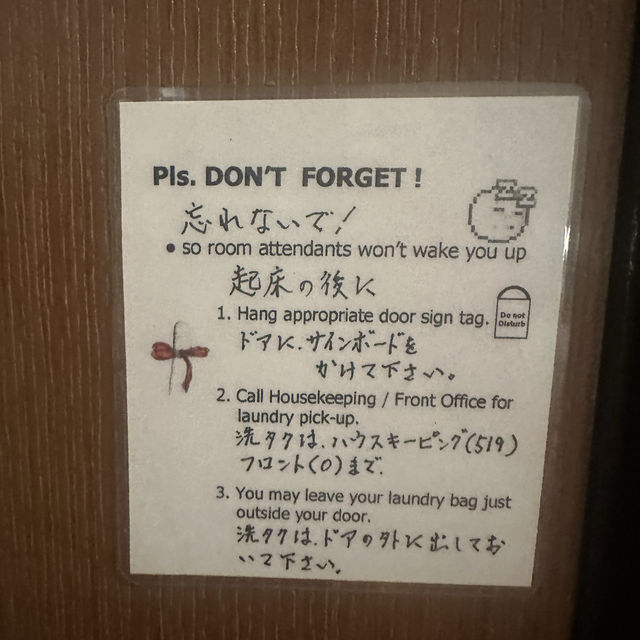 Pls. DON'T FORGET !
忘れないで!
• so room attendants won't wake you up
起床の後に
1. Hang appropriate door sign tag.
Do not
Disturb
ドアに、サインボードを
かけて下さい。
2. Call Housekeeping / Front Office for
laundry pick-up.
洗タクは、ハウスキーピング(519)
フロント(0)まで、
3. You may leave your laundry bag just
outside your door.
洗タクは、ドアの外に出してお
いて下さい。